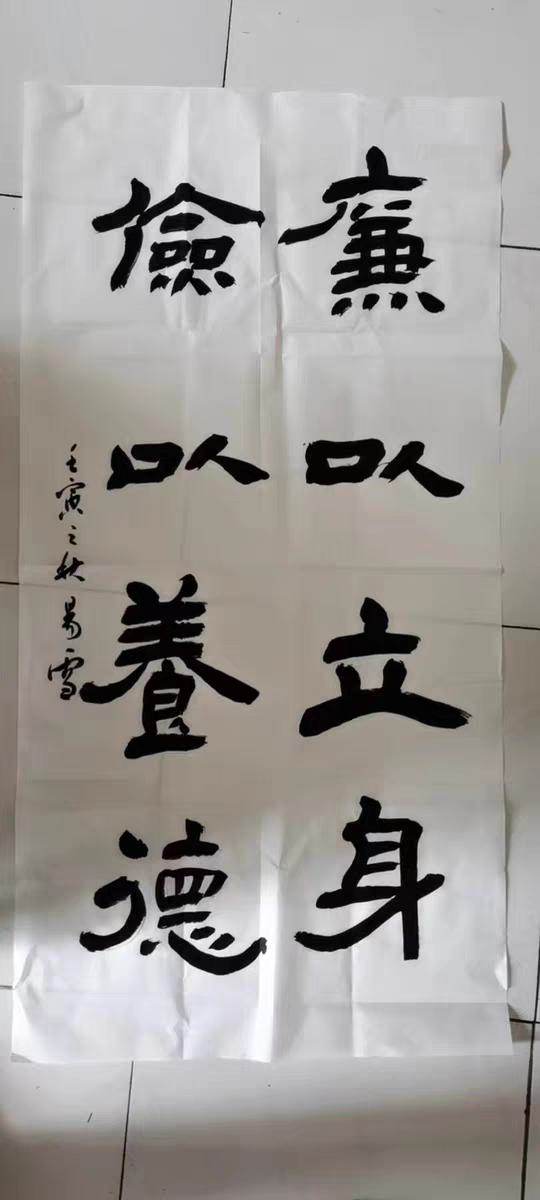 廉以立身
儉以養德
壬寅之秋易雪